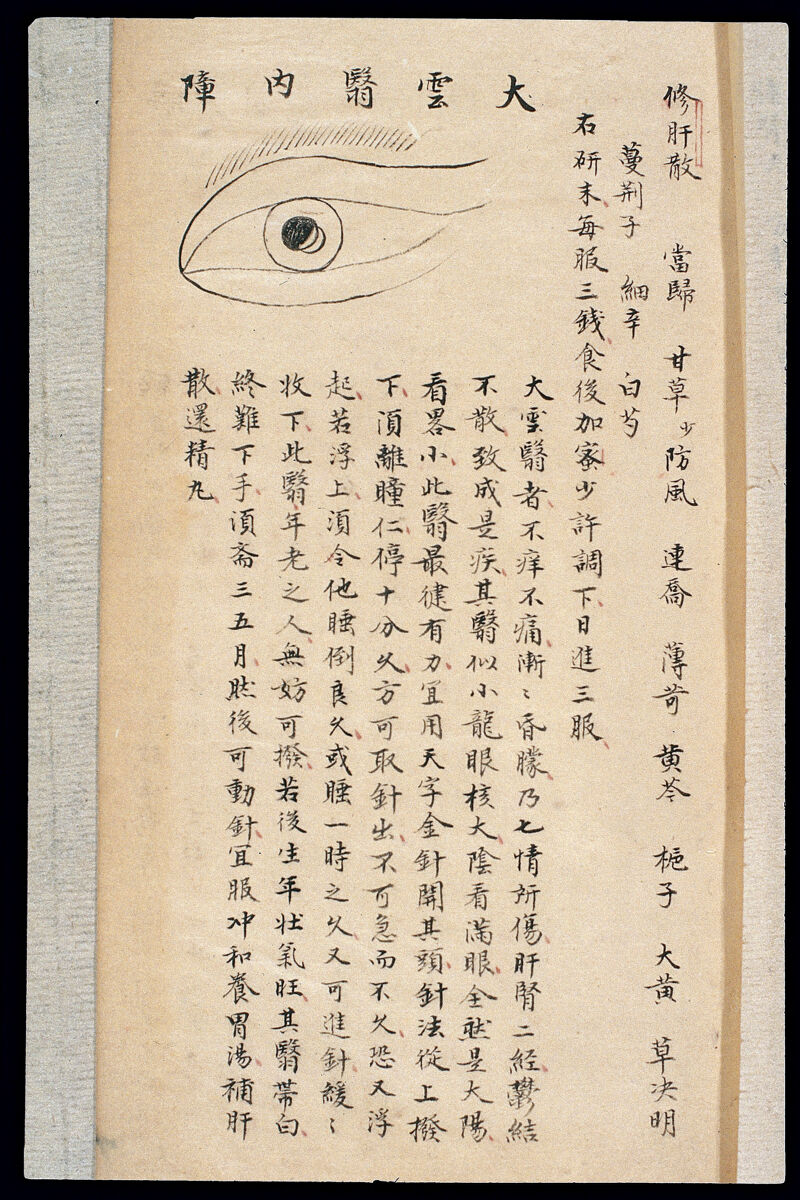 修肝散 當歸 甘草少 防風 連喬 薄苛 黃苓 梔子 大黃 草决明
蔓荆子 細辛 白芍
右研末每服三錢食後加蜜少許調下日進三服
大雲翳內障
大雲翳者不痒不痛漸〻昏朦乃七情所傷肝腎二経鬱結
不散致成是疾其翳似小龍眼核大陰看滿眼全然是大陽
看畧小此翳最徤有力宜用天字金針開其頭針法從上撥
下湏離瞳仁停十分久方可取針出不可急而不久恐又浮
起若浮上湏令他睡倒良久或睡一時之久又可進針緩〻
收下此翳年老之人無妨可撥若後生年壯氣旺其翳帶白
終難下手湏斋三五月然後可動針宜服冲和養胃湯補肝
散還精丸